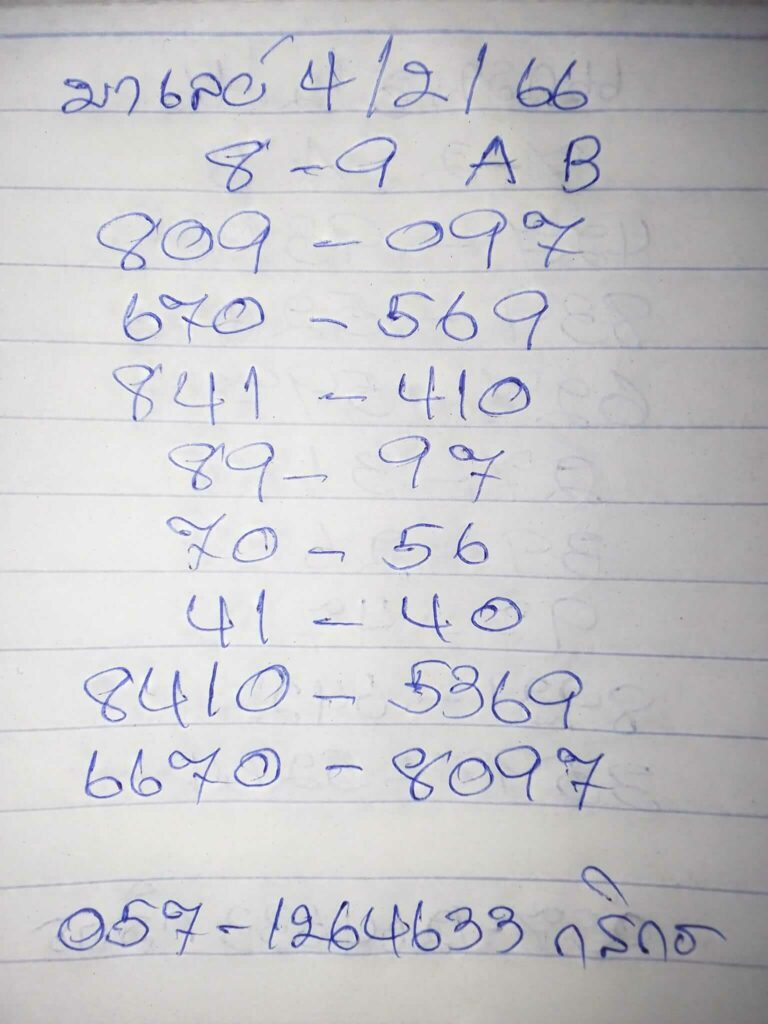 มาเลย์ 4/2/66
8-9 A B
809-097
670-569
841-410
89-97
70-56
41-40
8410-5369
6670-8097
057-1264633 กสิกร